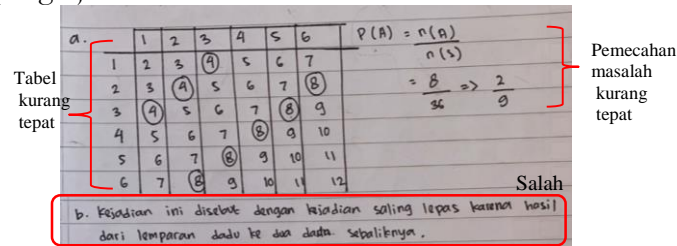 a. 1 2 3 4 5 6
1 2 3 4 5 6 7
2 3 4 5 6 7 8
3 4 5 6 7 8 9
4 5 6 7 8 9 10
5 6 7 8 9 10 11
6 7 8 9 10 11 12
P(A) = n(A)
n(s)
= 8 => 2
36 9
Tabel
kurang
tepat
Pemecahan
masalah
kurang
tepat
Salah
b. Kejadian ini disebut dengan kejadian saling lepas karena hasil
dari lemparan dadu ke dua sebaliknya.